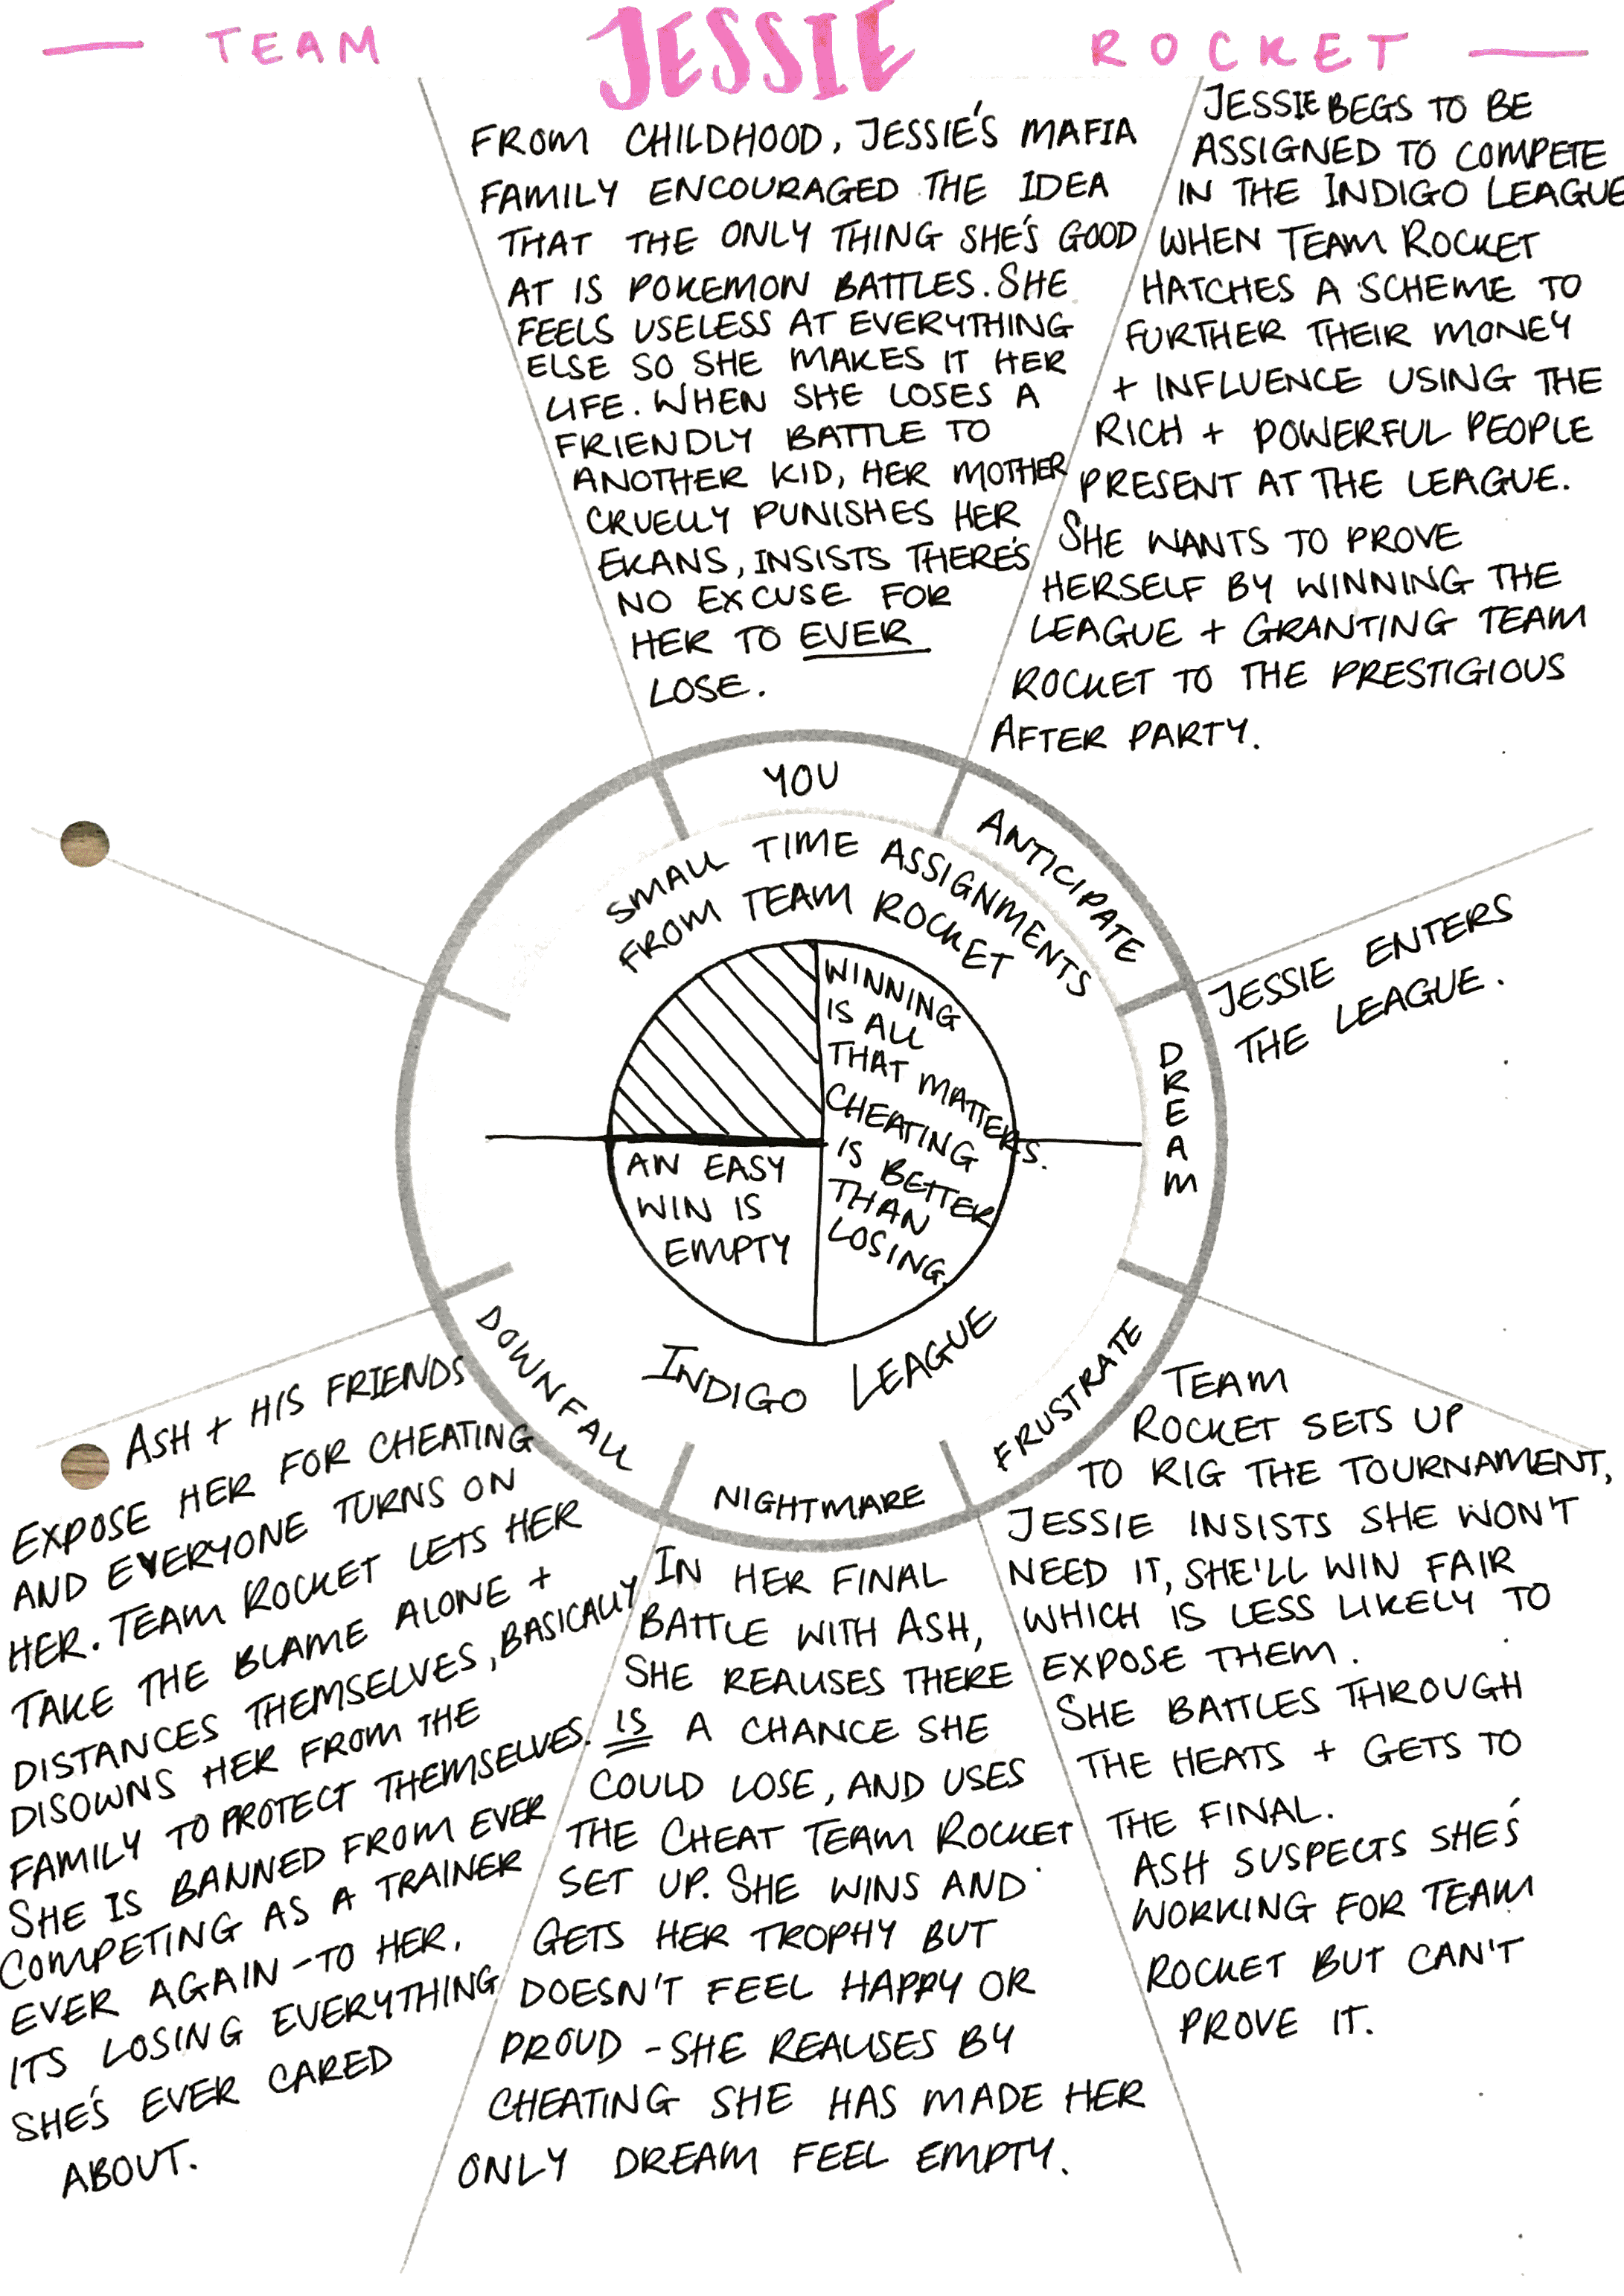 — TEAM JESSIE ROCKET —
FROM CHILDHOOD, JESSIE'S MAFIA
FAMILY ENCOURAGED THE IDEA
THAT THE ONLY THING SHE'S GOOD
AT IS POKEMON BATTLES. SHE
FEELS USELESS AT EVERYTHING
ELSE SO SHE MAKES IT HER
LIFE. WHEN SHE LOSES A
FRIENDLY BATTLE TO
ANOTHER KID, HER MOTHER
CRUELLY PUNISHES HER
EKANS, INSISTS THERE'S
NO EXCUSE FOR
HER TO EVER
LOSE.
JESSIE BEGS TO BE
ASSIGNED TO COMPETE
IN THE INDIGO LEAGUE
WHEN TEAM ROCKET
HATCHES A SCHEME TO
FURTHER THEIR MONEY
+ INFLUENCE USING THE
RICH + POWERFUL PEOPLE
PRESENT AT THE LEAGUE.
SHE WANTS TO PROVE
HERSELF BY WINNING THE
LEAGUE + GRANTING TEAM
ROCKET TO THE PRESTIGIOUS
AFTER PARTY.
YOU
ANTICIPATE
DREAM
FRUSTRATE
NIGHTMARE
DOWNFALL
SMALL TIME ASSIGNMENTS
FROM TEAM ROCKET
WINNING
IS ALL
THAT MATTERS.
CHEATING
IS BETTER
THAN
LOSING.
AN EASY
WIN IS
EMPTY
INDIGO LEAGUE
JESSIE ENTERS
THE LEAGUE.
TEAM
ROCKET SETS UP
TO RIG THE TOURNAMENT,
JESSIE INSISTS SHE WON'T
NEED IT, SHE'LL WIN FAIR
WHICH IS LESS LIKELY TO
EXPOSE THEM.
SHE BATTLES THROUGH
THE HEATS + GETS TO
THE FINAL.
ASH SUSPECTS SHE'S
WORKING FOR TEAM
ROCKET BUT CAN'T
PROVE IT.
IN HER FINAL
BATTLE WITH ASH,
SHE REALISES THERE
IS A CHANCE SHE
COULD LOSE, AND USES
THE CHEAT TEAM ROCKET
SET UP. SHE WINS AND
GETS HER TROPHY BUT
DOESN'T FEEL HAPPY OR
PROUD - SHE REALISES BY
CHEATING SHE HAS MADE HER
ONLY DREAM FEEL EMPTY.
ASH + HIS FRIENDS
EXPOSE HER FOR CHEATING
AND EVERYONE TURNS ON
HER. TEAM ROCKET LETS HER
TAKE THE BLAME ALONE +
DISTANCES THEMSELVES, BASICALLY
DISOWNS HER FROM THE
FAMILY TO PROTECT THEMSELVES.
SHE IS BANNED FROM EVER
COMPETING AS A TRAINER
EVER AGAIN - TO HER,
ITS LOSING EVERYTHING
SHE'S EVER CARED
ABOUT.